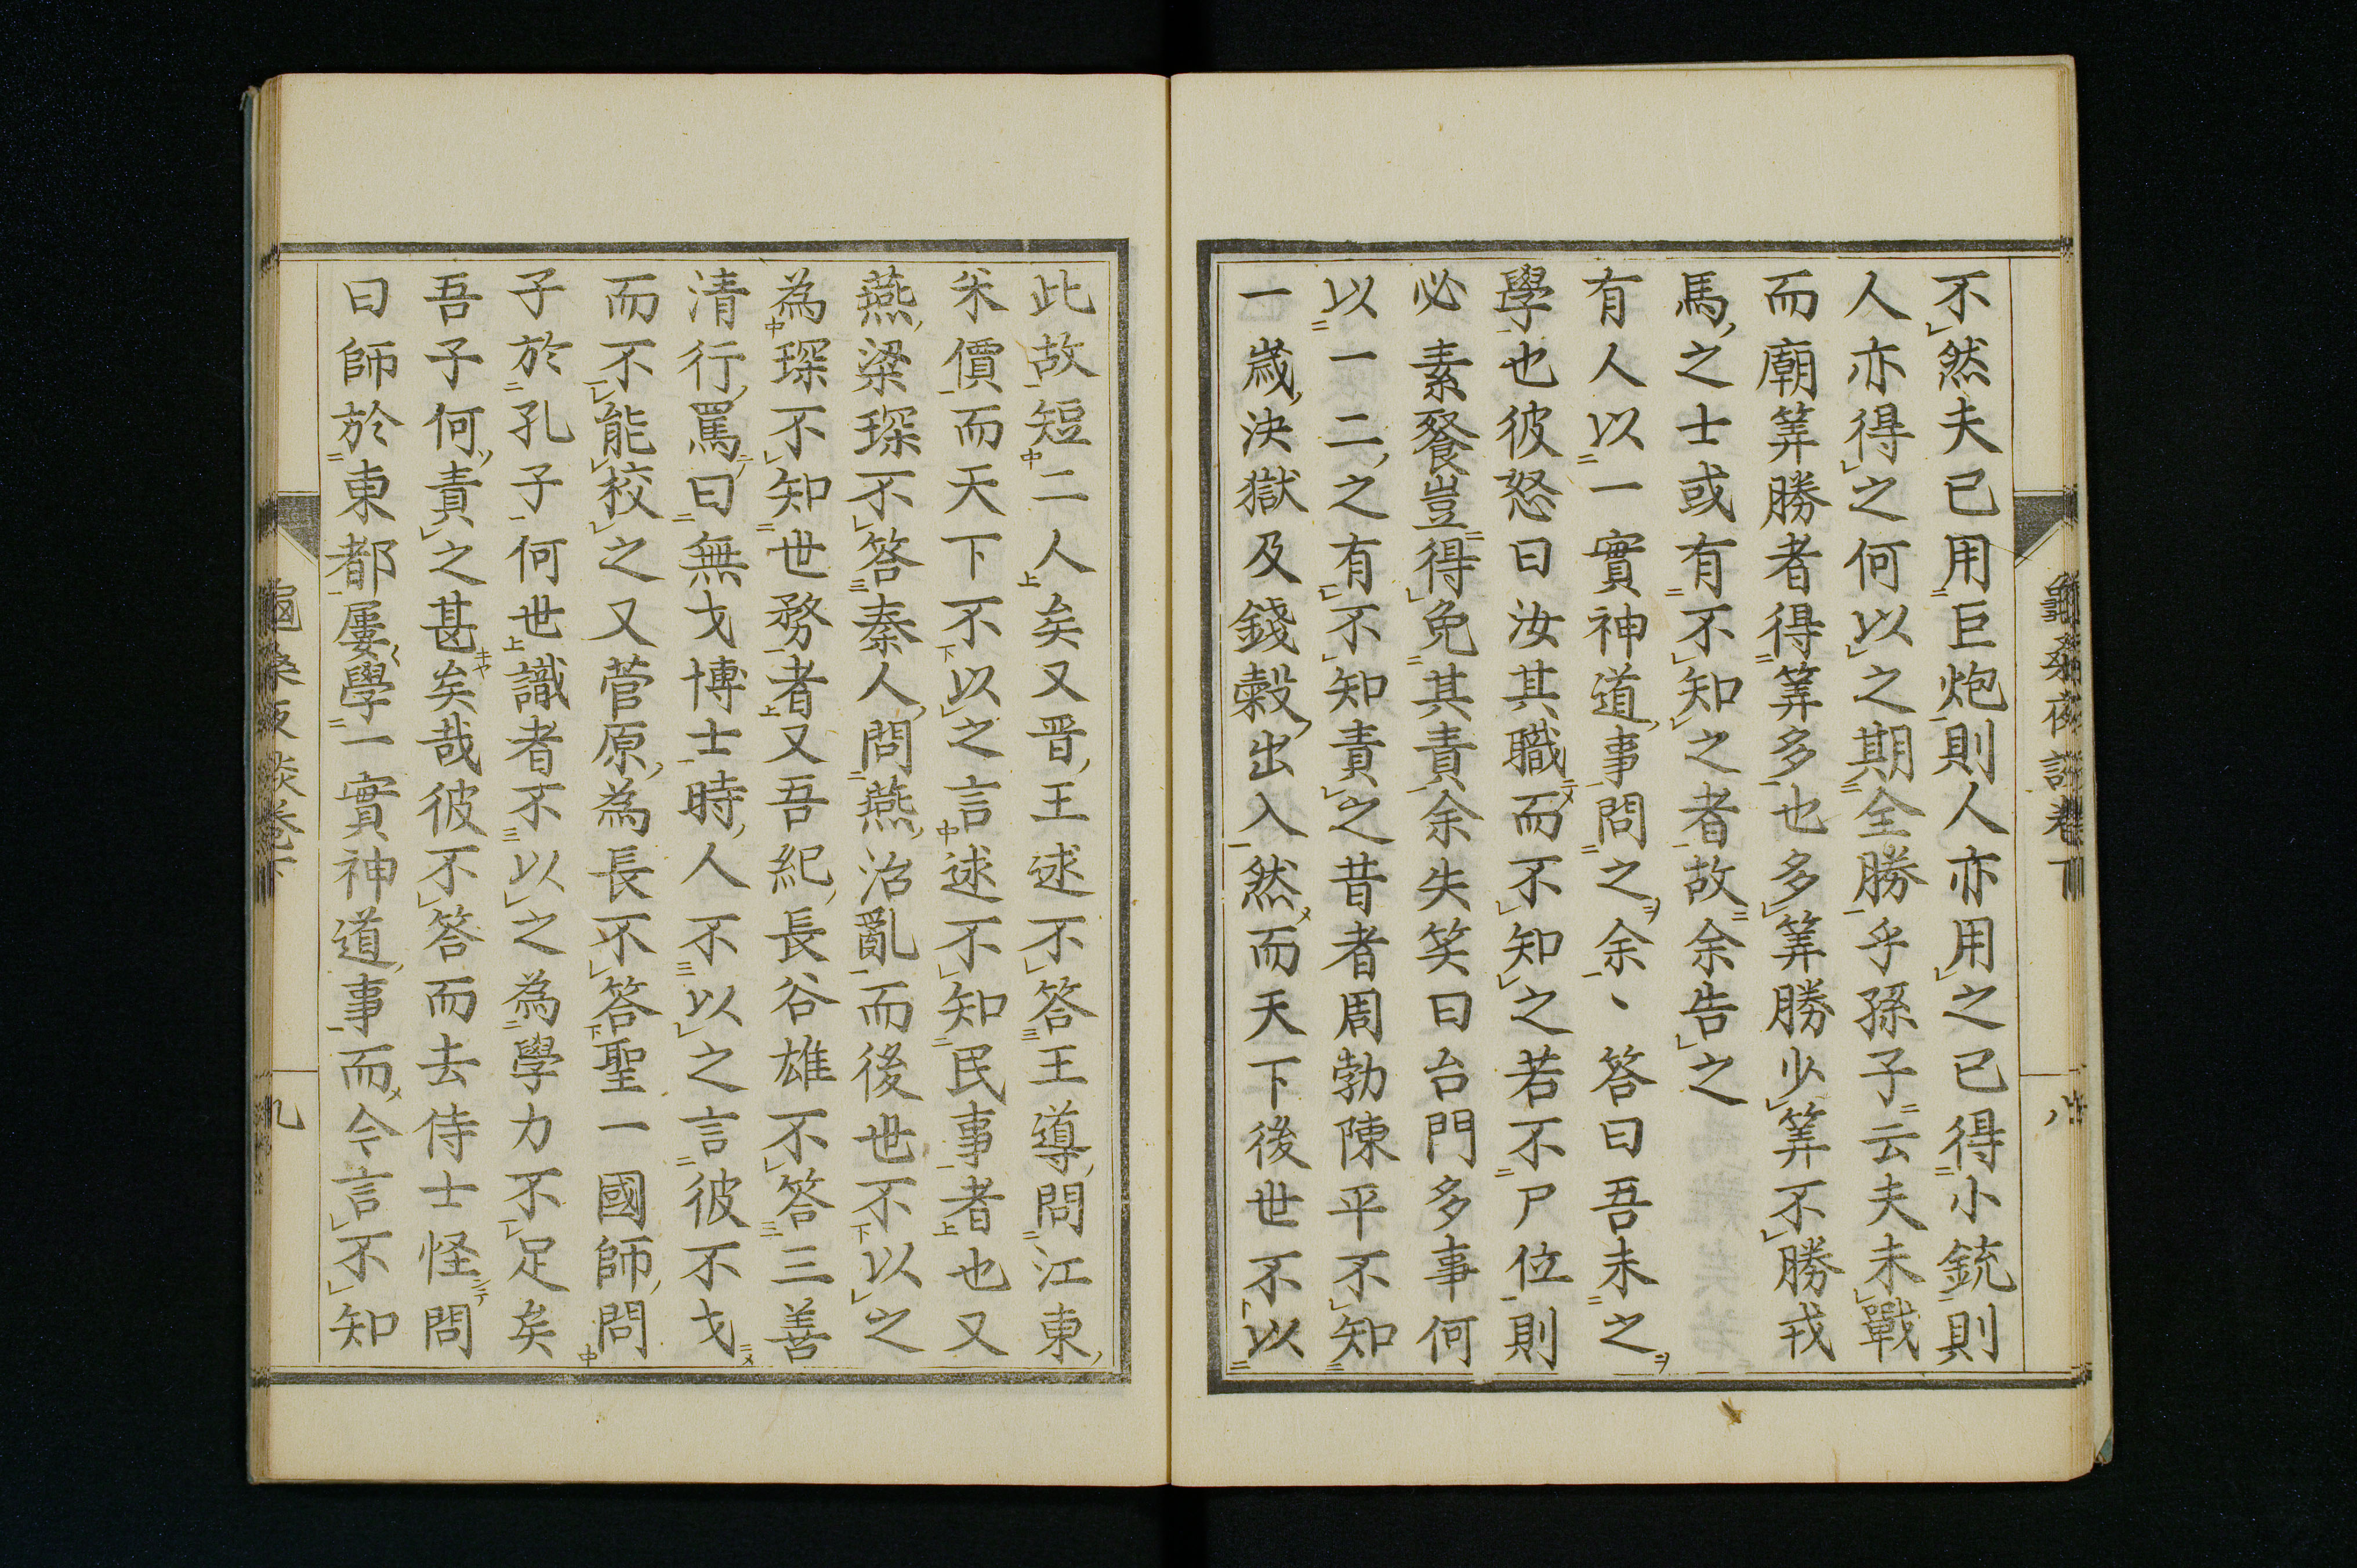 不然夫已用巨炮則人亦用之已得小銃則
人亦得之何以之期全勝乎孫子云夫未戰
而廟筭勝者得筭多也多筭勝少筭不勝戎
馬之士或有不知之者故余告之
有人以一實神道事問之余、答曰吾未之
學也彼怒曰汝其職而不知之若不尸位則
必素餐豈得免其責余失笑曰台門多事何
以一二之有不知責之昔者周勃陳平不知
一歲決獄及錢穀出入然而天下後世不以
此故短二人矣又晋王逑不答王導問江東
米價而天下不以之言逑不知民事者也又
燕梁琛不答秦人問燕治亂而後世不以之
為琛不知世務者又吾紀長谷雄不答三善
清行罵曰無才博士時人不以之言彼不才
而不能校之又菅原為長不答聖一國師問
子於孔子何世識者不以之為學力不足矣
吾子何責之甚矣哉彼不答而去侍士怪問
曰師於東都屢學一實神道事而今言不知
夜談卷下
八
卷下
九